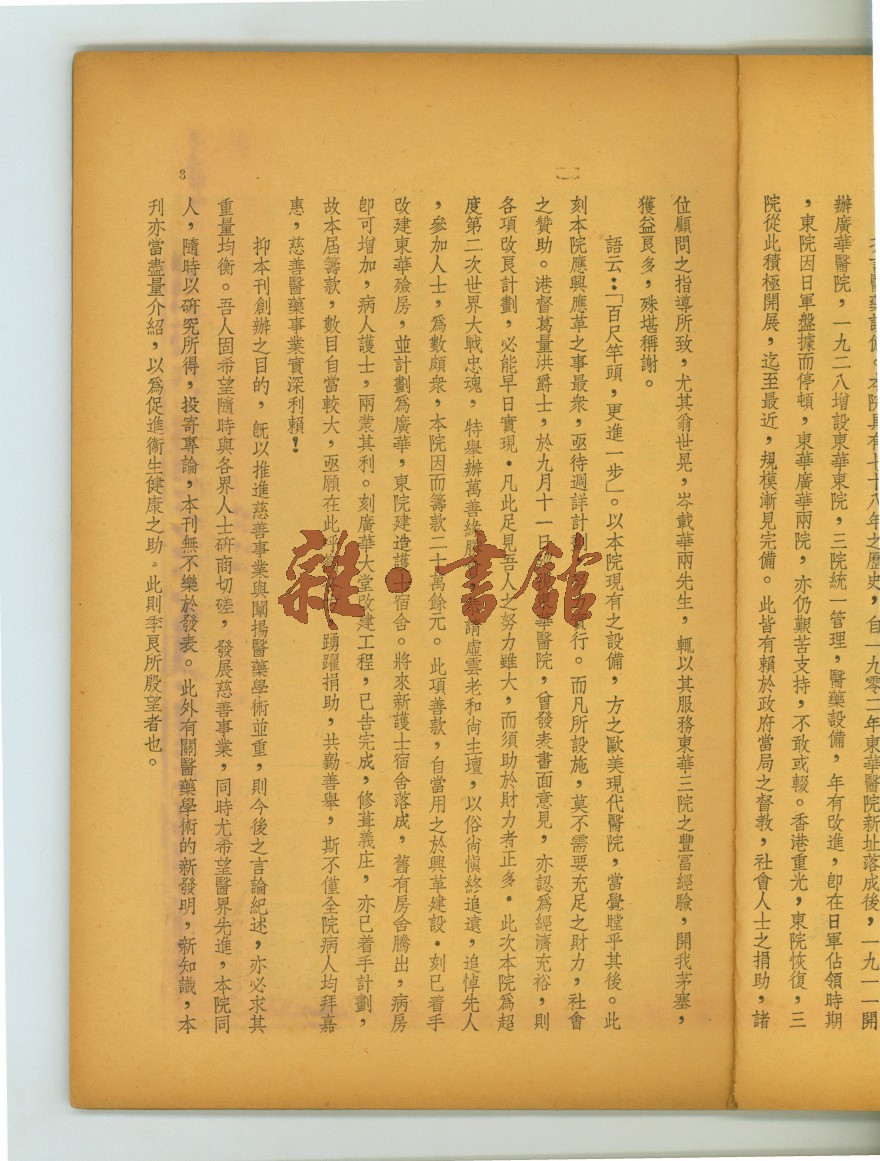 院具有七十八年之歷史，自一九零二年東華醫院新址落成後，一九一一開
辦廣華醫院，一九二八增設東華東院，三院統一管理，醫藥設備，年有改進，卽在日軍佔領時期
，東院因日軍盤據而停頓，東華廣華兩院，亦仍艱苦支持，不敢或輟。香港重光，東院恢復，三
院從此積極開展，迄至最近，規模漸見完備。此皆有賴於政府當局之督教，社會人士之捐助，諸
位顧問之指導所致，尤其翁世晃，岑載華兩先生，輒以其服務東華三院之豐富經驗，開我茅塞，
獲益良多，殊堪稱謝。
語云：「百尺竿頭，更進一步」。以本院現有之設備，方之歐美現代醫院，當覺瞠乎其後。此
刻本院應興應革之事最衆，亟待週詳計劃實行。而凡所設施，莫不需要充足之財力，社會
之贊助。港督葛量洪爵士，於九月十一日華醫院，曾發表書面意見，亦認爲經濟充裕，則
各項改良計劃，必能早日實現．凡此足見吾人之努力雖大，而須助於財力者正多．此次本院爲超
度第二次世界大戰忠魂，特舉辦萬善緣請虛雲老和尚主壇，以俗尚愼終追遠，追悼先人
，參加人士，爲數頗衆，本院因而籌款二十萬餘元。此項善款，自當用之於興革建設．刻已着手
改建東華殮房，並計劃爲廣華，東院建造護士宿舍。將來新護士宿舍落成，舊有房舍騰出，病房
卽可增加，病人護士，兩蒙其利。刻廣華大堂改建工程，已告完成，修葺義庄，亦已着手計劃，
故本屆籌款，數目自當較大，亟願在此踴躍捐助，共勷善舉，斯不僅全院病人均拜嘉
惠，慈善醫藥事業實深利賴！
抑本刊創辦之目的，旣以推進慈善事業與闡揚醫藥學術並重，則今後之言論紀述，亦必求其
重量均衡。吾人固希望隨時與各界人士硏商切磋，發展慈善事業，同時尤希望醫界先進，本院同
人，隨時以硏究所得，投寄專論，本刊無不樂於發表。此外有關醫藥學術的新發明，新知識，本
刊亦當盡量介紹，以爲促進衞生健康之助。此則李良所殷望者也。
二
3
雜·書館